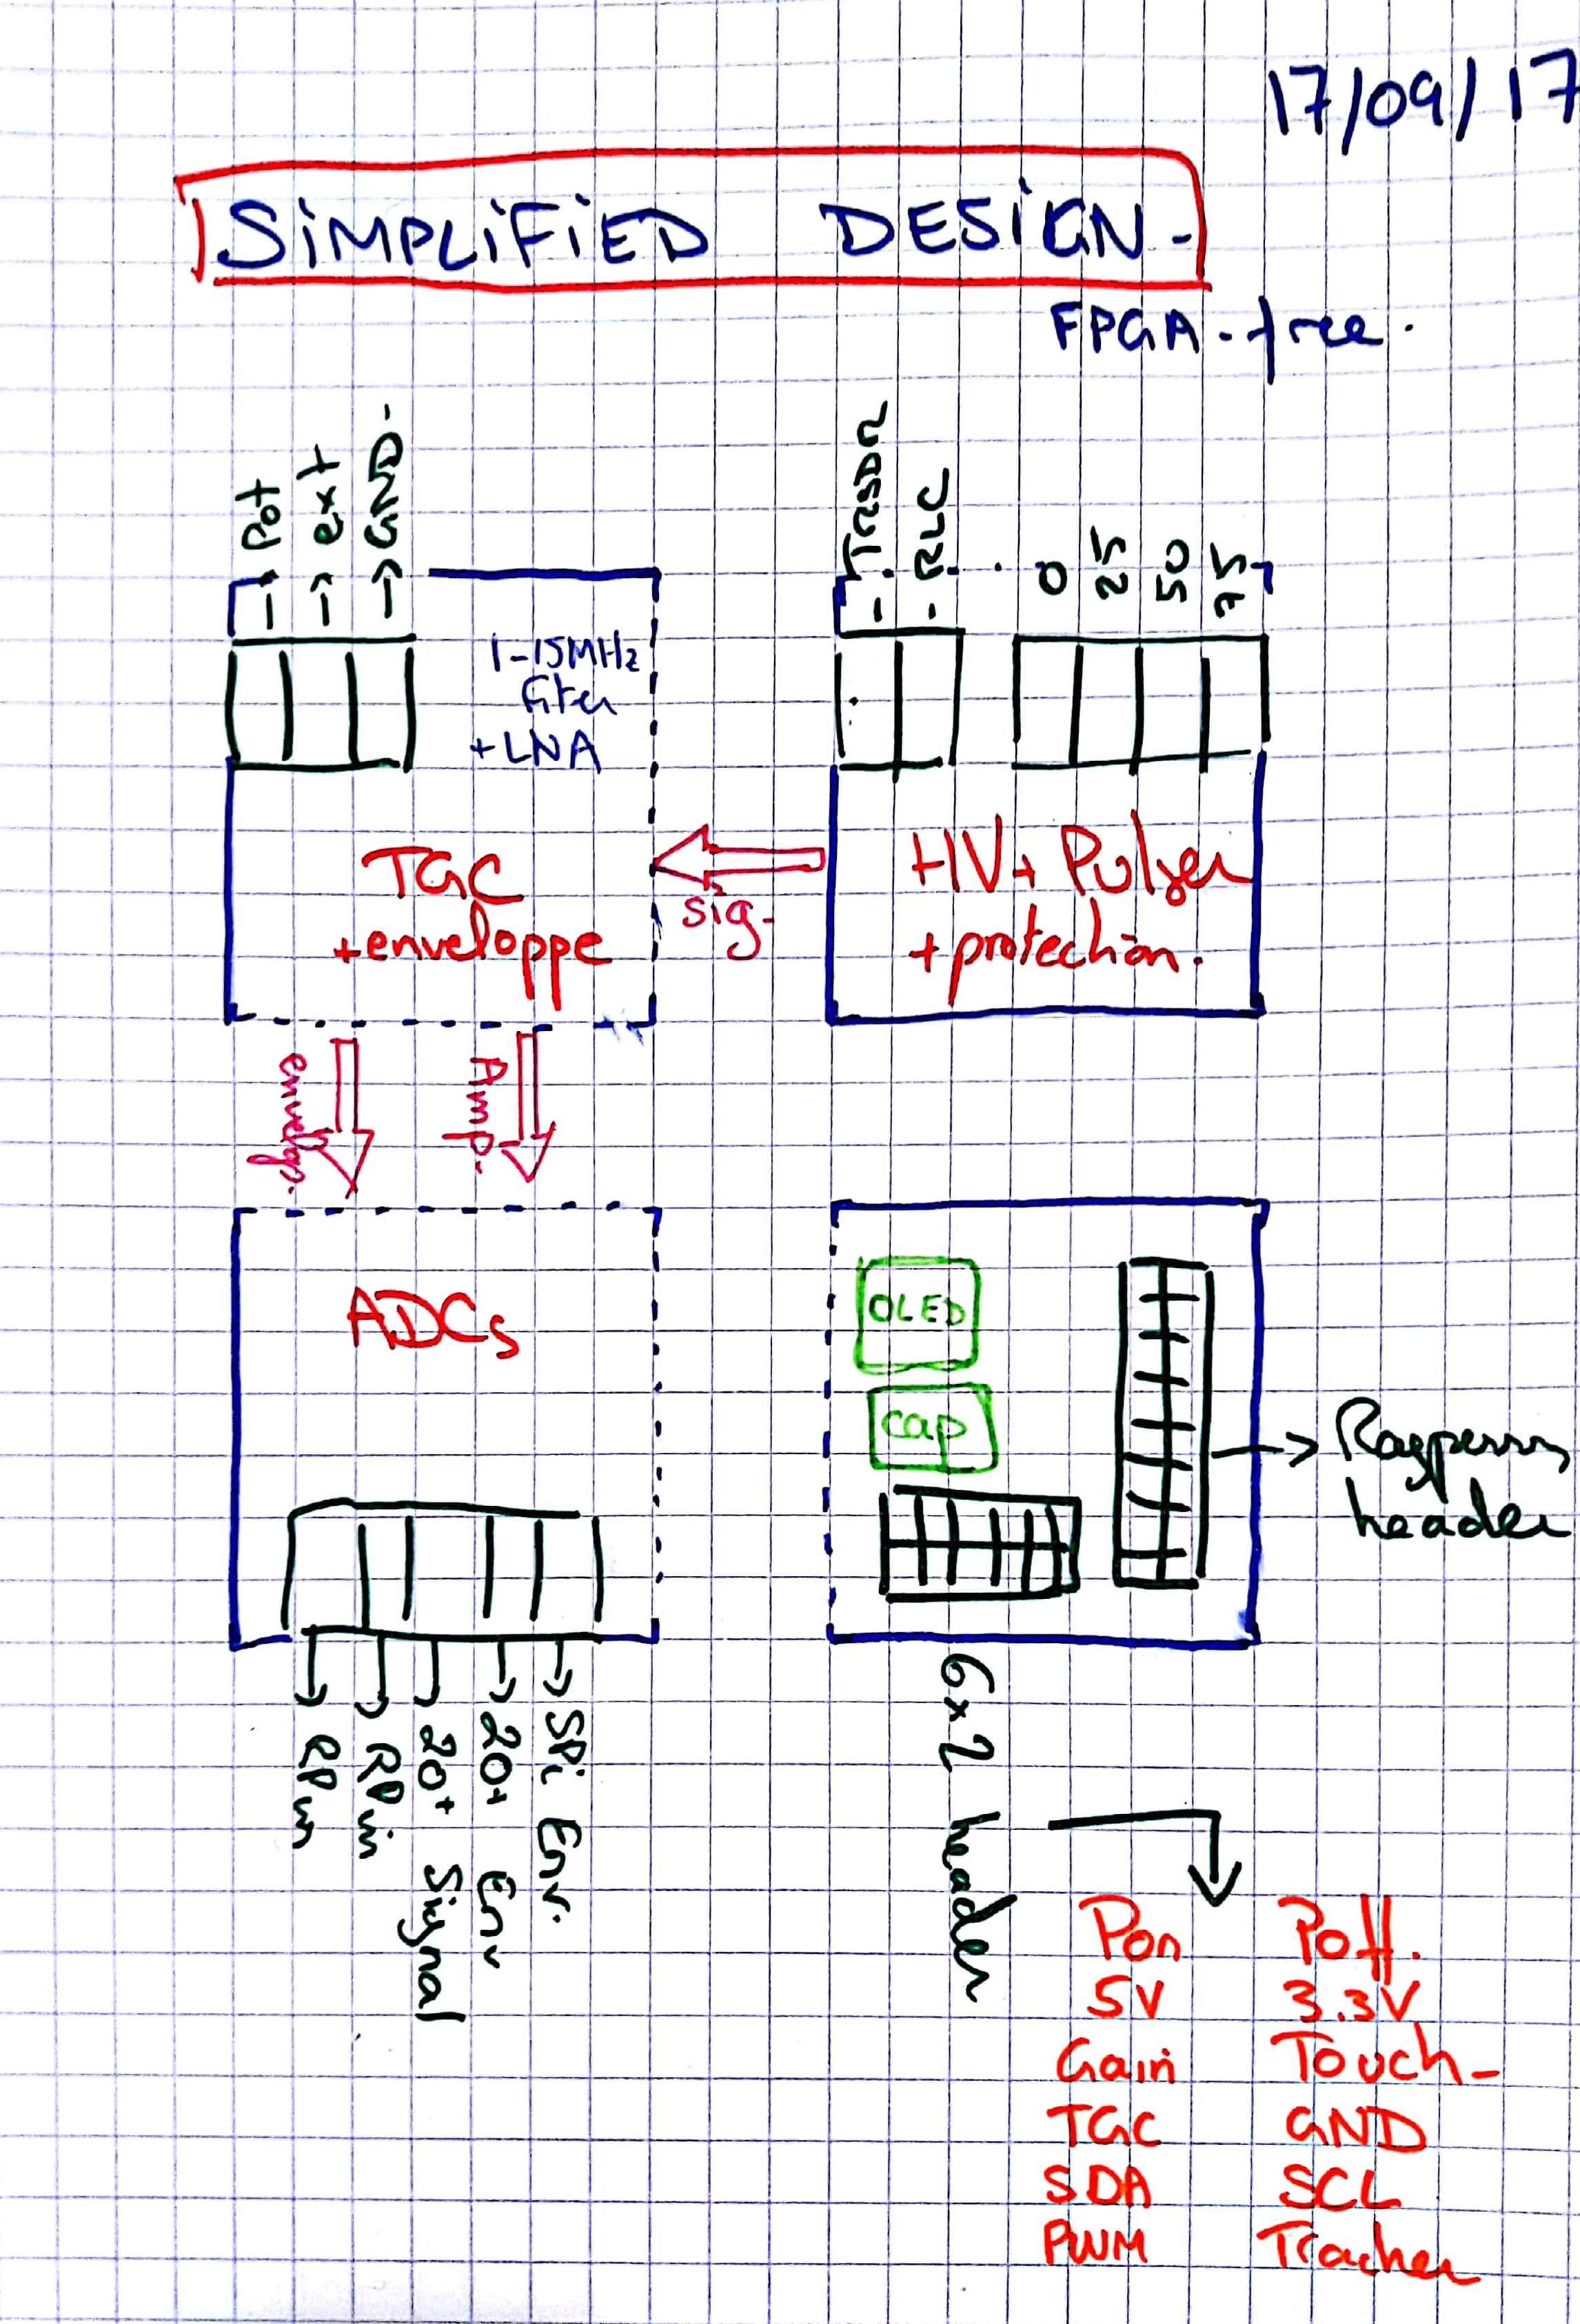 17/09/17
SiMPLiFiED DESiGN-
FPGA-free.
Pot
ext
GND
TRSDR
RLC
0
25
50
75
1-15MHz
filter
+LNA
TGC
+enveloppe
sig-
HV+ Pulser
+protection.
envelop.
Amp.
ADCs
OLED
cap
header
6x2 header
RPin
RPin
20+ Signal
20+ Env
SPi Env.
Pon Poff.
5V 3.3V
Gain Touch-
TGC GND
SDA SCL
PWM Tracker